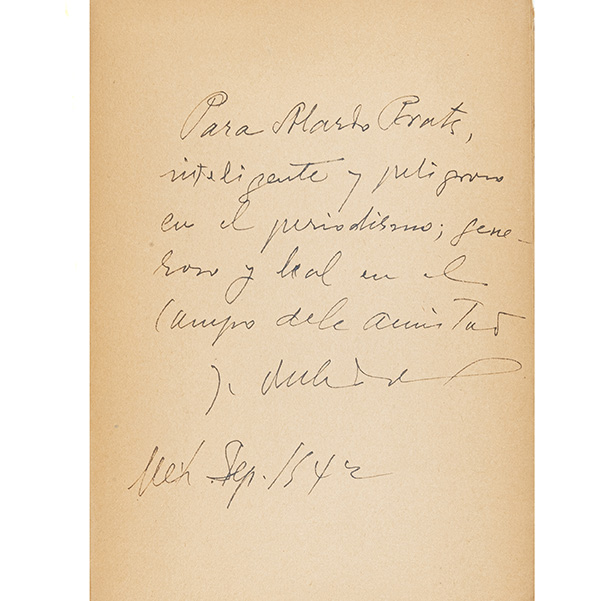 Para Alardo Prats,
inteligente y peligroso
en el periodismo; gene-
roso y leal en el
campo de la amistad
J.
Mex. Sep. 1942